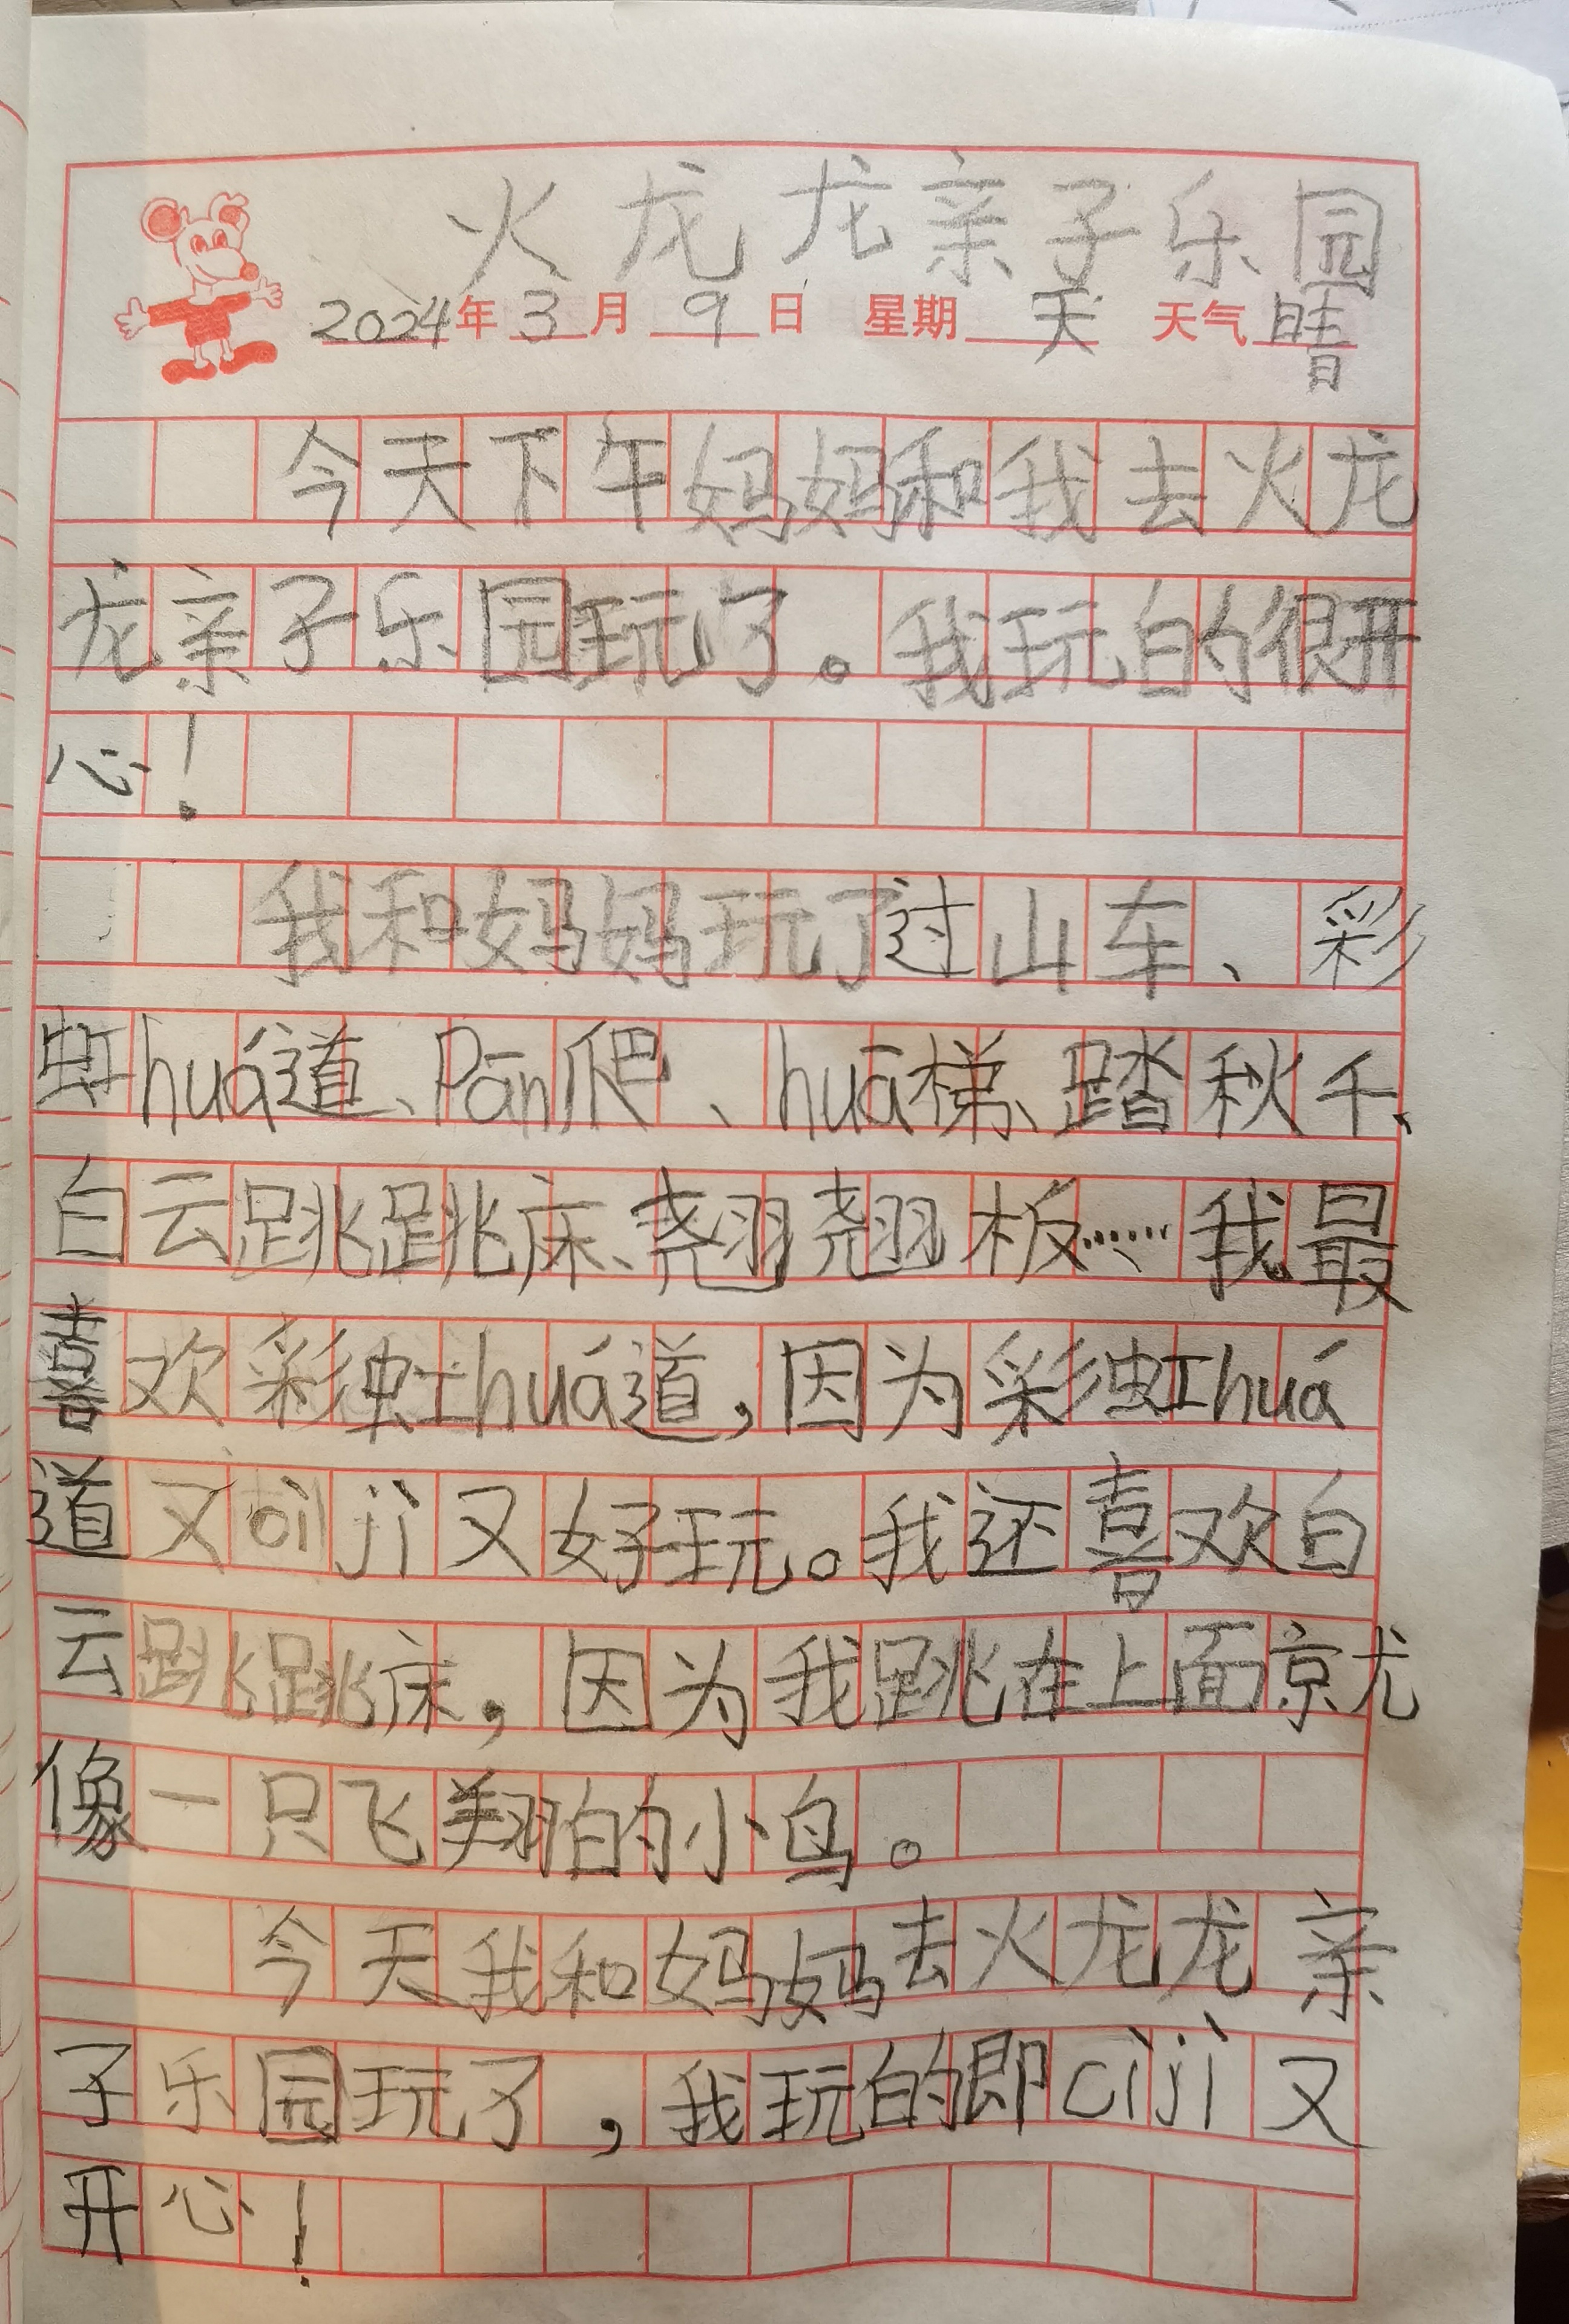 火龙龙亲子乐园
2024年3月9日 星期天 天气晴
今天下午妈妈和我去火龙
龙亲子乐园玩了。我玩的很开
心!
我和妈妈玩了过山车、彩
虹huá道、Pān爬、huā梯、踏秋千、
白云跳跳床、翘翘板……我最
喜欢彩虹huá道,因为彩虹huá
道又ciji又好玩。我还喜欢白
云跳跳床,因为我跳在上面就
像一只飞翔的小鸟。
今天我和妈妈去火龙龙亲
子乐园玩了,我玩的即cìjī又
开心!